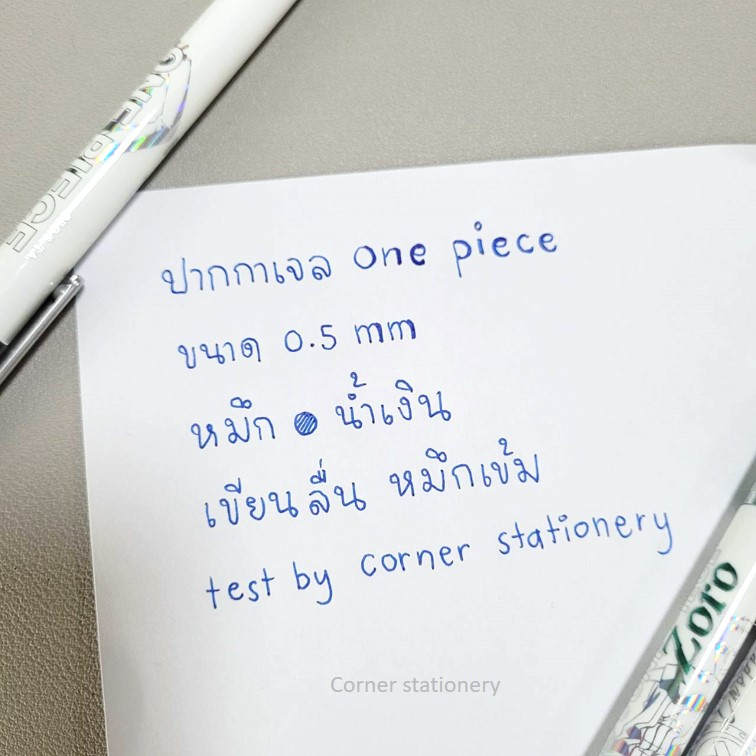 ONE PIECE
ปากกาเจล one piece
ขนาด 0.5 mm
หมึก น้ำเงิน
เขียนลื่น หมึกเข้ม
test by corner stationery
Zoro
Corner stationery